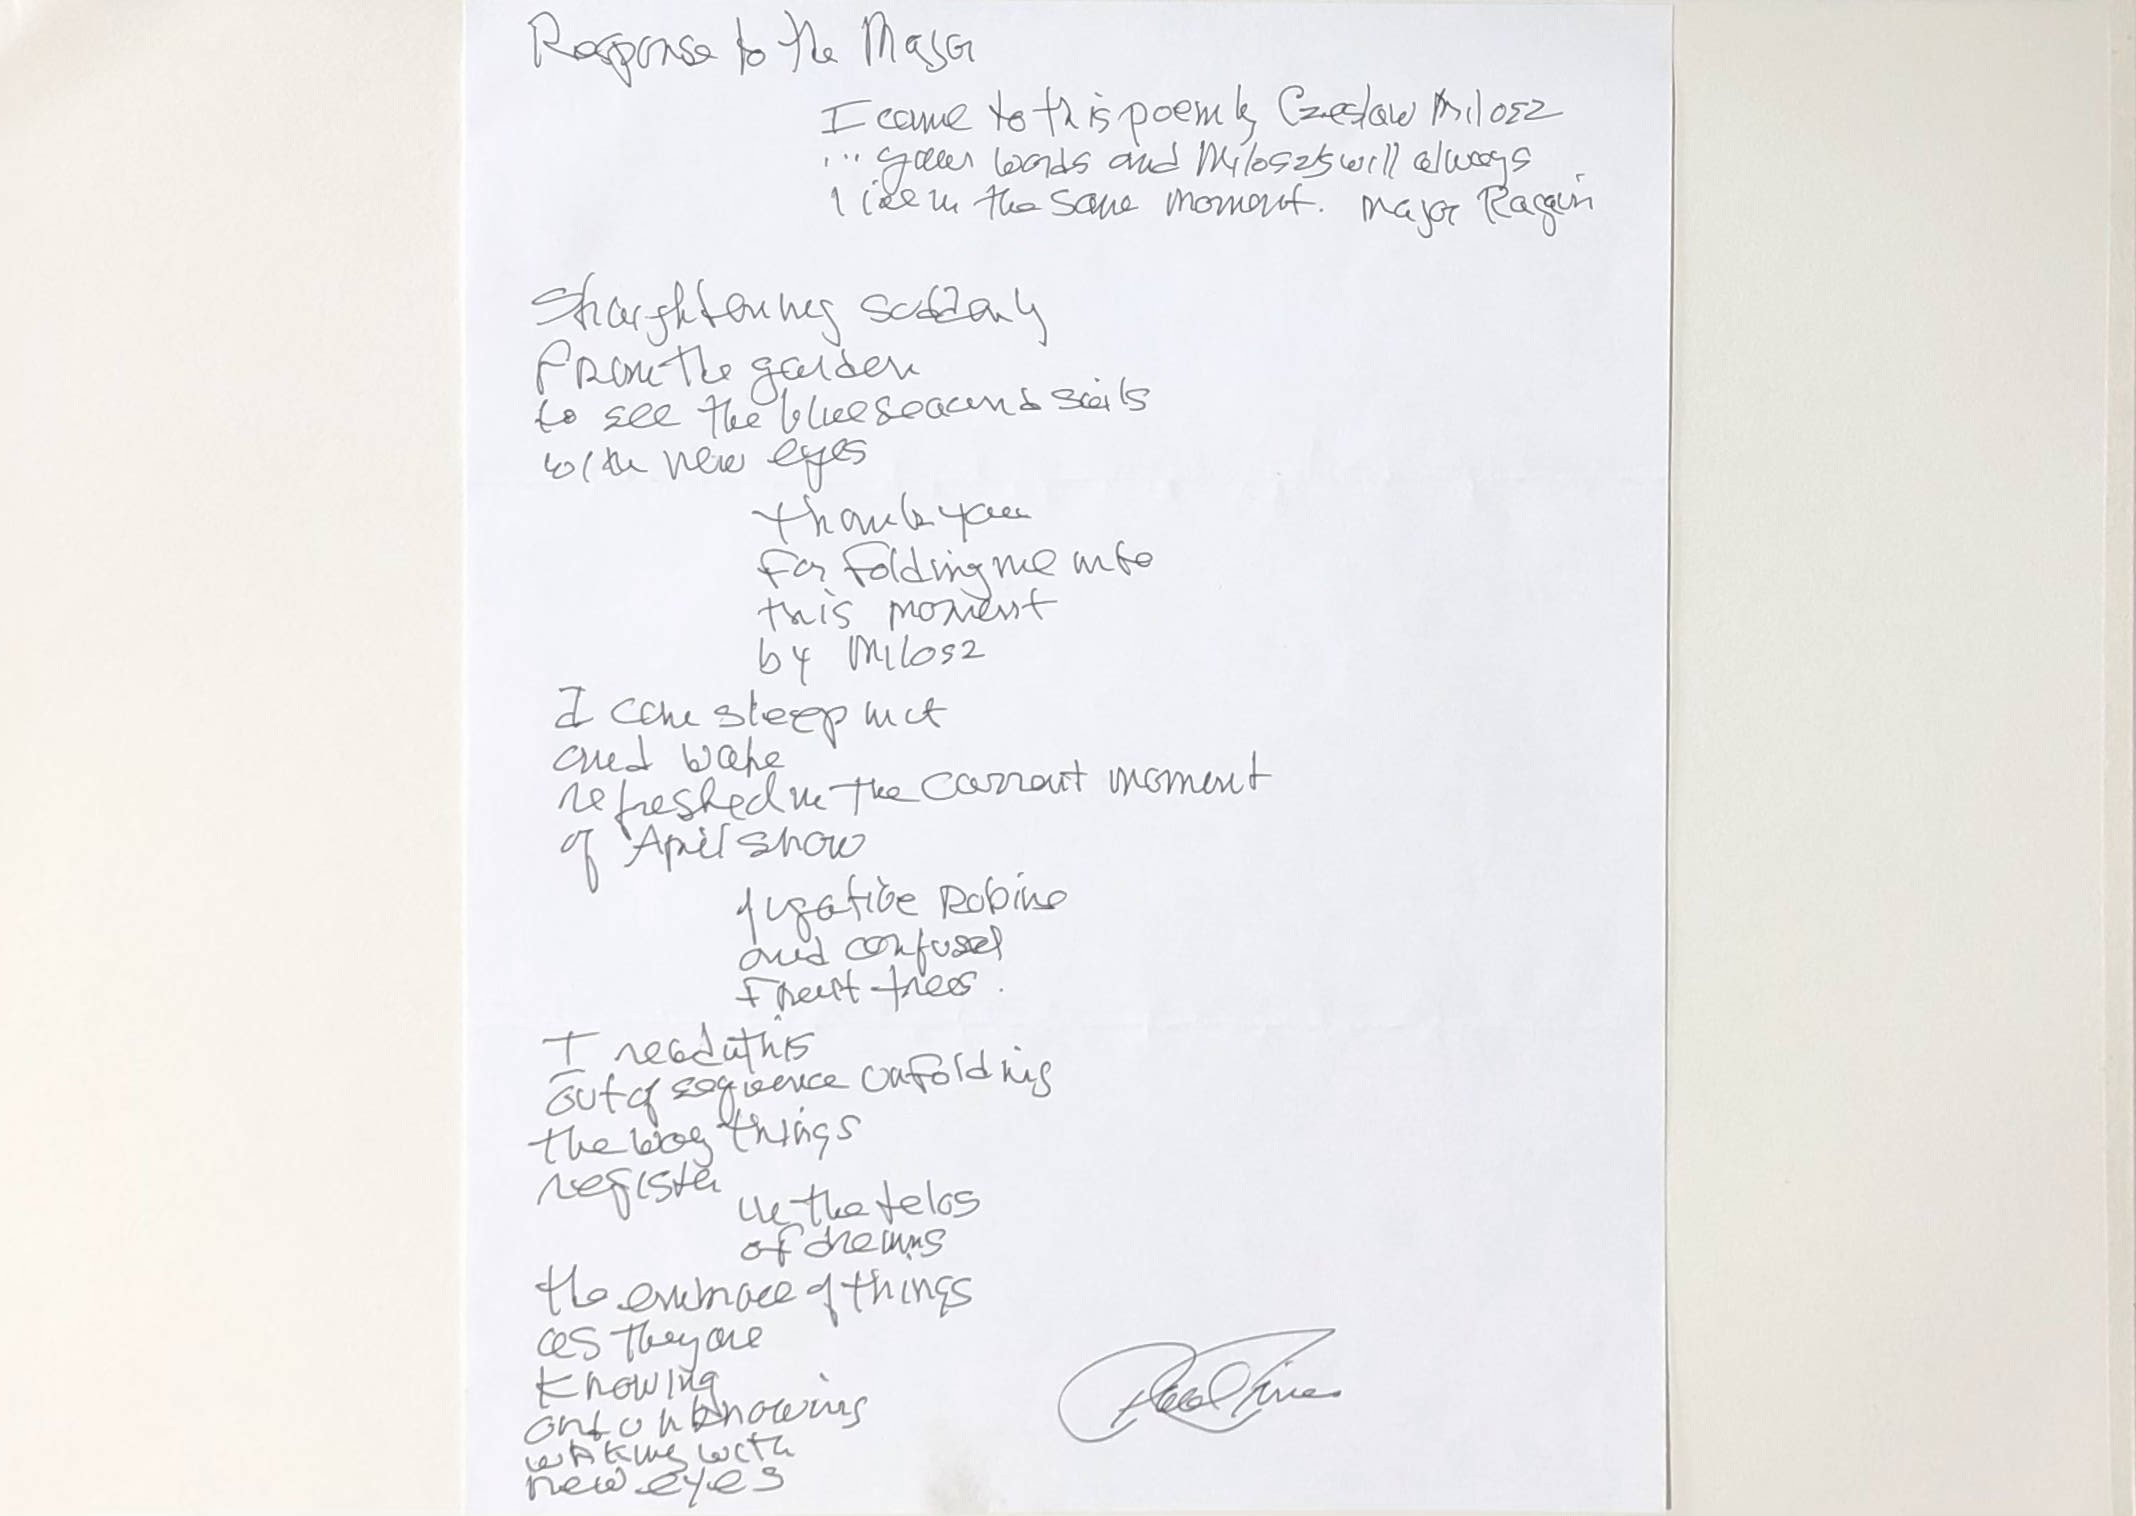 Response to the Major
I came to this poem by Czeslaw Milosz
... your words and Milosz's will always
live in the same moment. Major Ragain
Straightening suddenly
from the garden
to see the blue sea and sails
with new eyes
thank you
for folding me into
this moment
by Milosz
I can sleep in it
and wake
refreshed in the current moment
of April snow
fugative Robins
and confused
fruit trees.
I read this
out of sequence unfolding
the way things
register
in the telos
of dreams
the embrace of things
as they are
knowing
and unknowing
waking with
new eyes